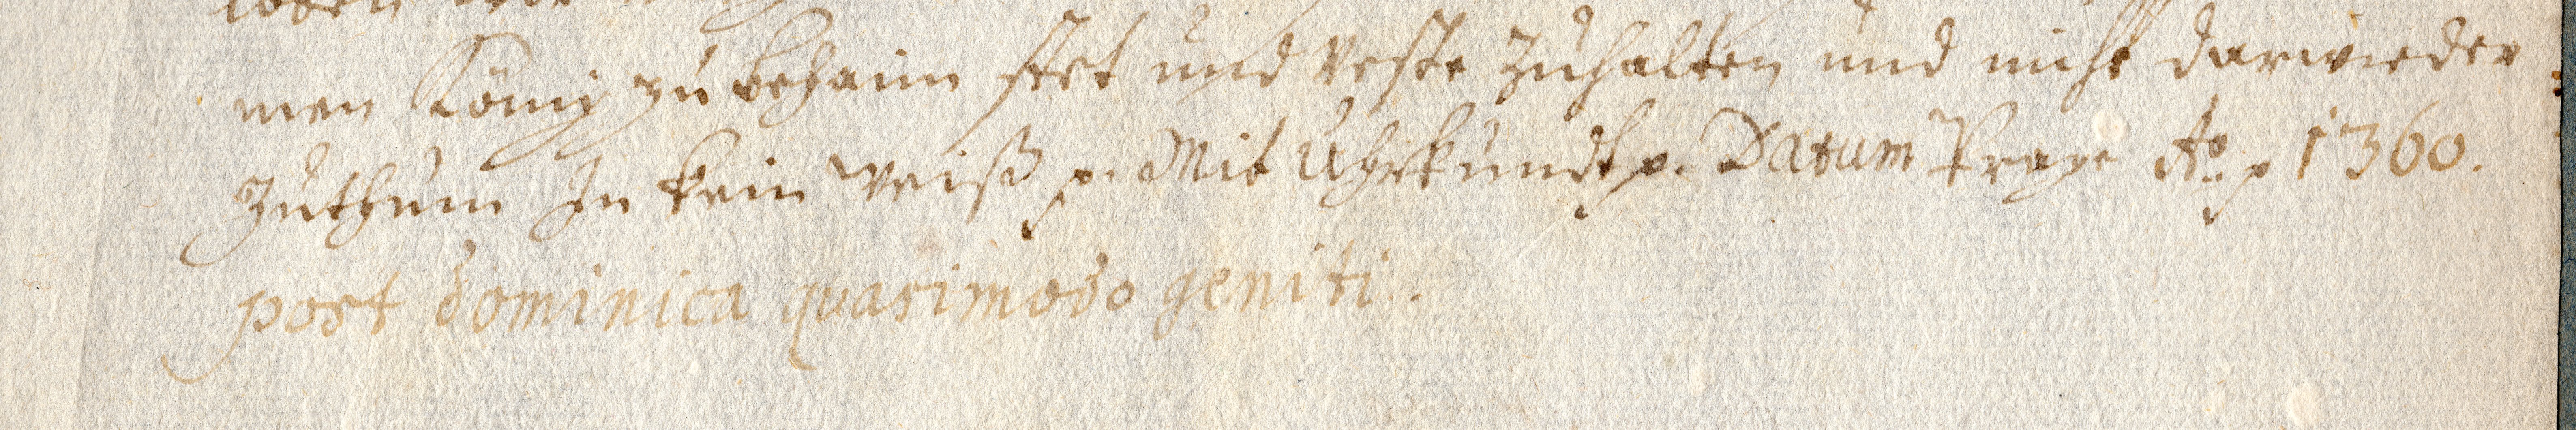 men König zu behaim stet und veste zuhalten und nicht darwieder
zuthun In kein weiß p. Mit Uhrkundt p. Datum Prage Ao p 1360.
post dominica quasimodo geniti.